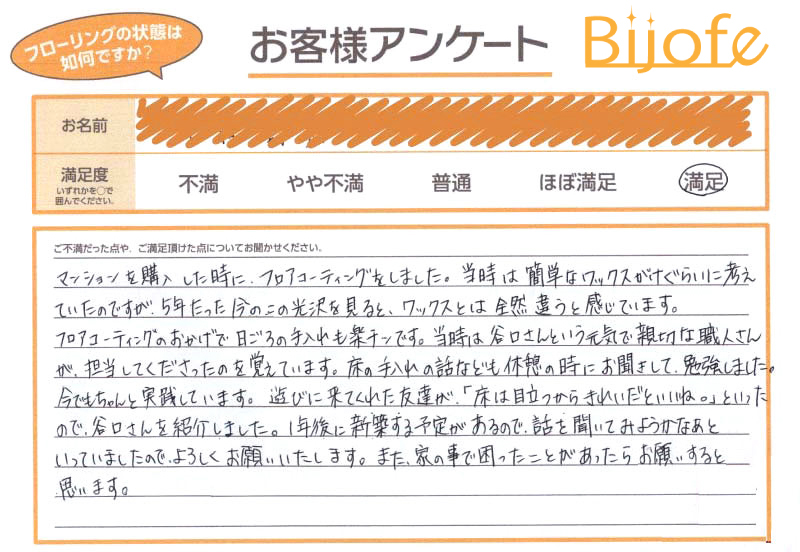 フローリングの状態は
如何ですか?
お客様アンケート
Bijofe
お名前
満足度
いずれかを○で
囲んでください。
不満 やや不満 普通 ほぼ満足 満足
ご不満だった点や、ご満足頂けた点についてお聞かせください。
マンションを購入した時に、フロアコーティングをしました。当時は簡単なワックスがけぐらいに考え
ていたのですが、5年たった今のこの光沢を見ると、ワックスとは全然違うと感じています。
フロアコーティングのおかげで日ごろの手入れも楽チンです。当時は谷口さんという元気で親切な職人さん
が、担当してくださったのを覚えています。床の手入れの話なども休憩の時にお聞きして、勉強しました。
今でもちゃんと実践しています。遊びに来てくれた友達が、「床は目立つからきれいだといいね。」といった
ので、谷口さんを紹介しました。1年後に新築する予定があるので、話を聞いてみようかなあと
いっていましたので、よろしくお願いいたします。また、家の事で困ったことがあったらお願いすると
思います。